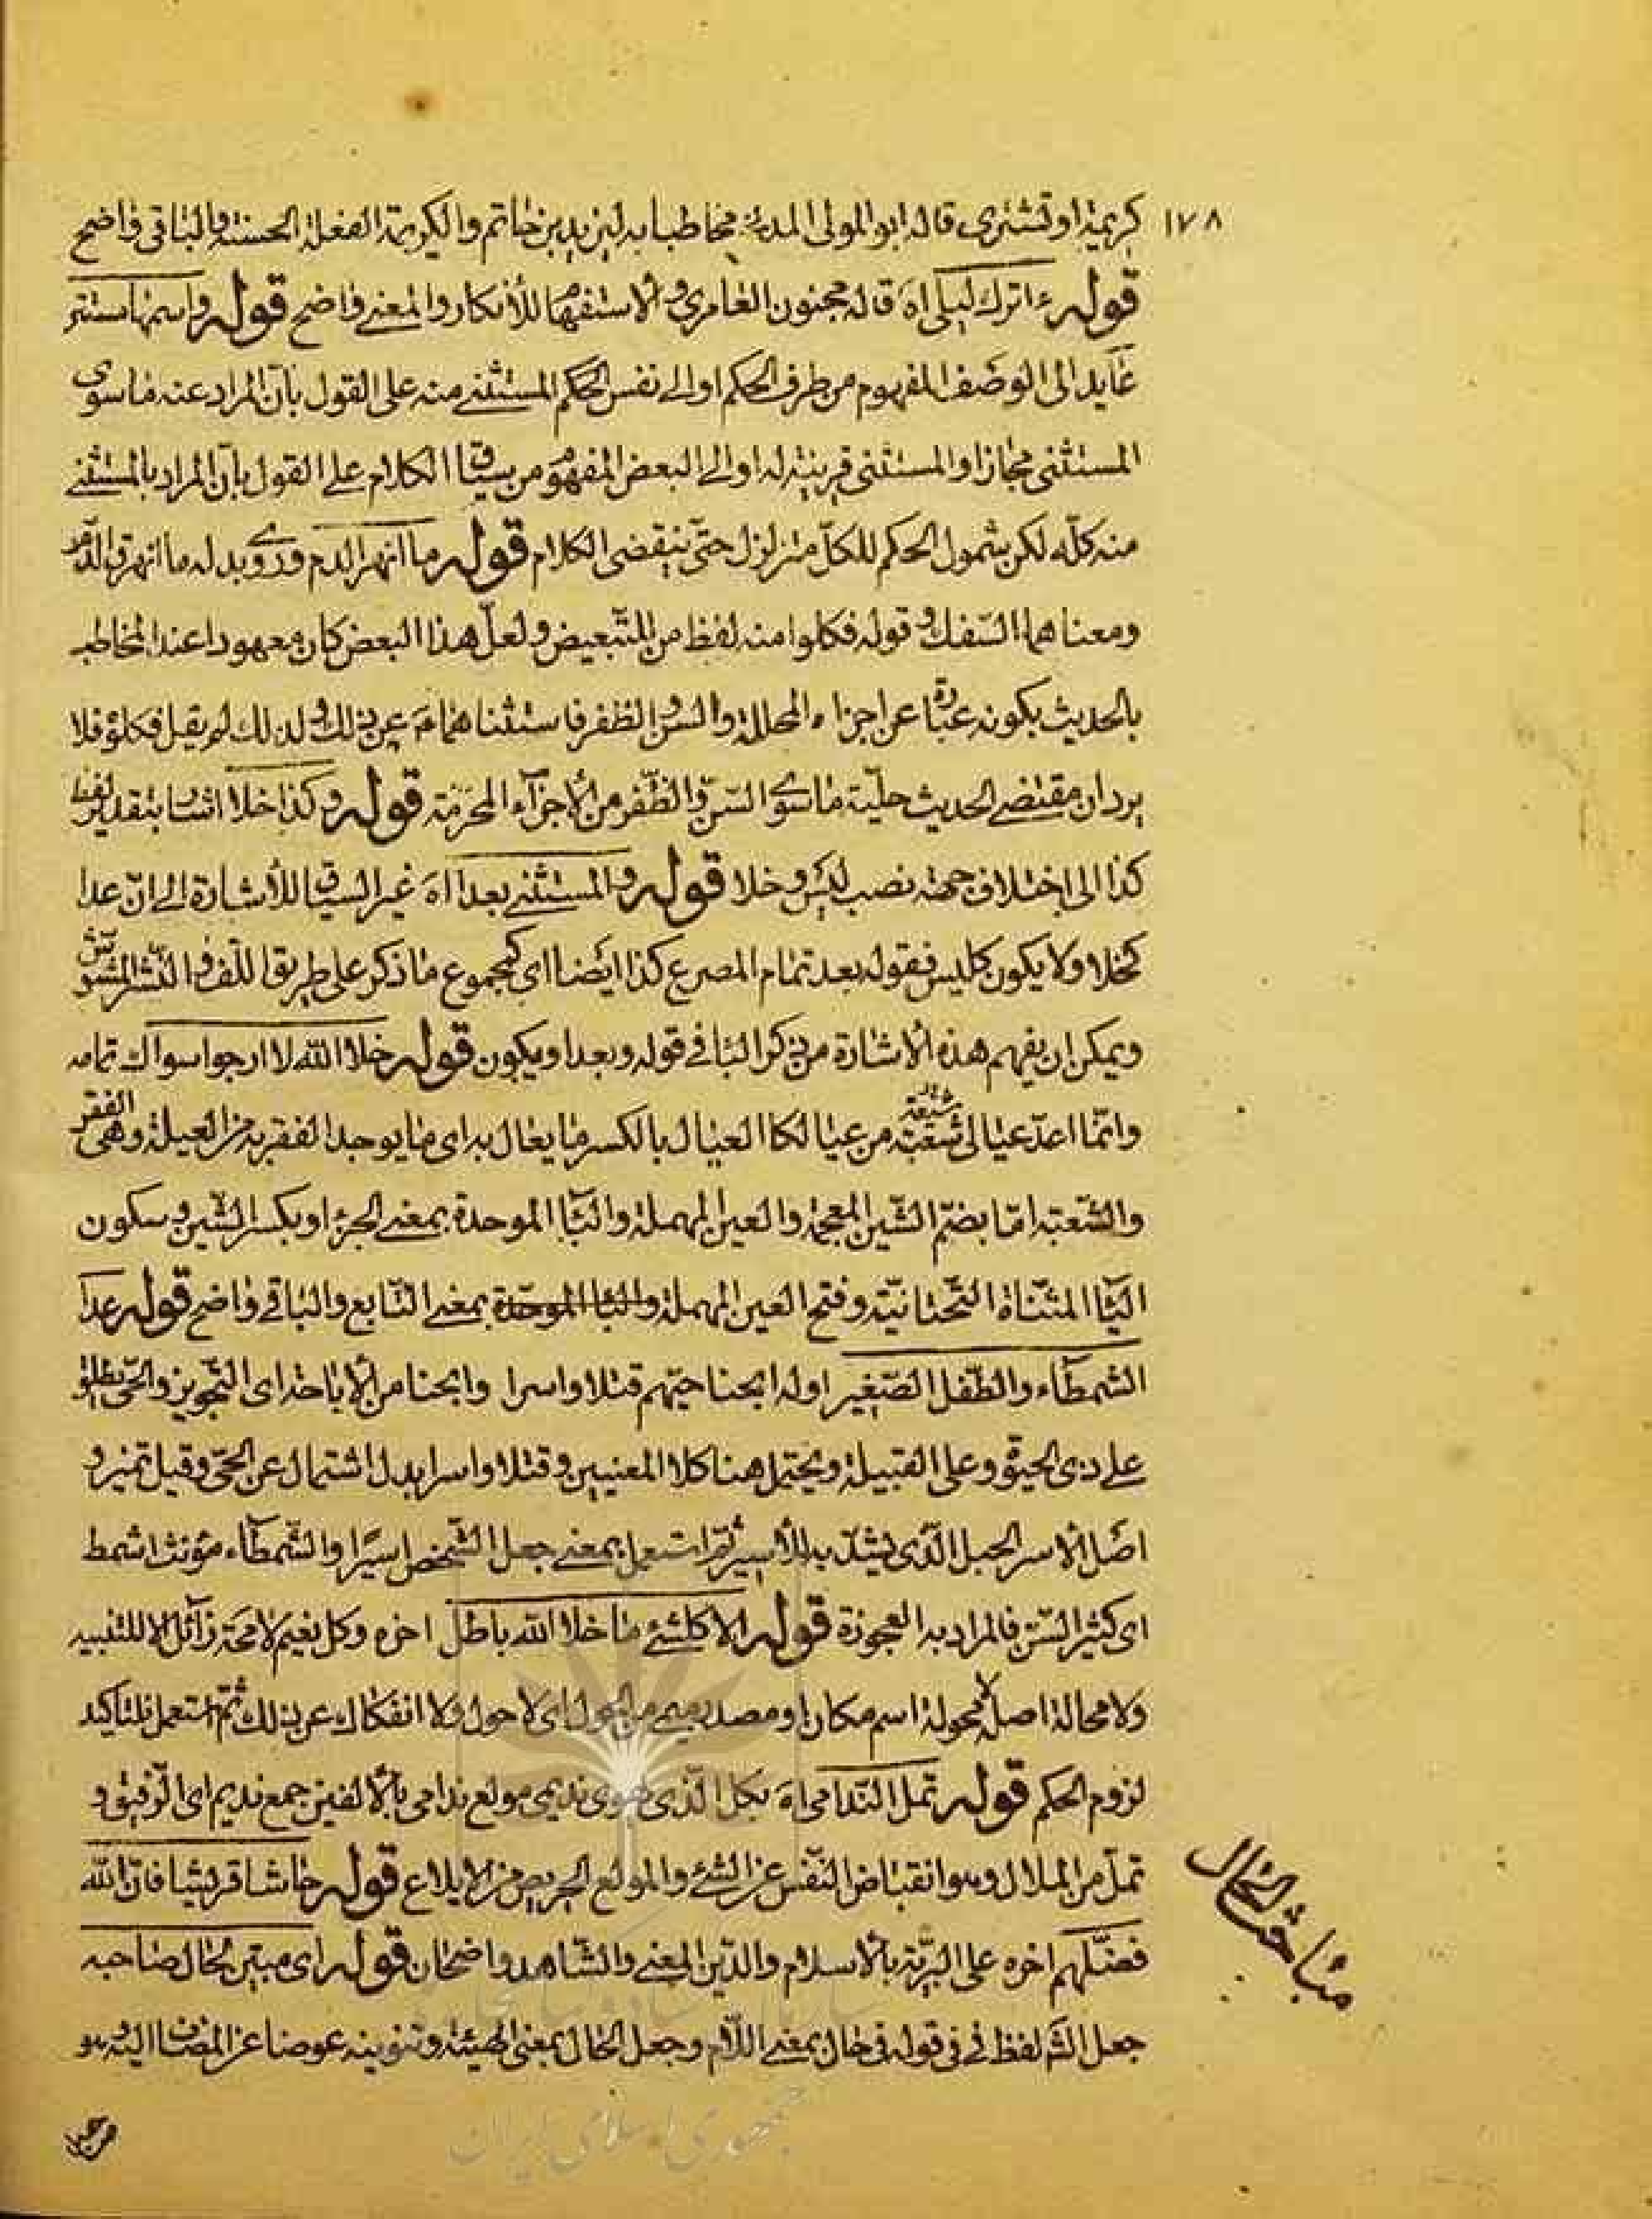 ١٧٨ كريمة او تشترى قاله ابو المولى المدنى مخاطبا به ليزيد بن حاتم والكريمة الفعلة الحسنة والباقى واضح
قوله ءاترك ليلى اه قاله مجنون العامرى والاستفهام للأنكار والمعنى واضح قوله واسمها مستتر
عايد الى الوصف المفهوم من طرف الحكم او الى نفس الحكم المستثنى منه على القول بأن المراد عنه ما سوى
المستثنى مجازا والمستثنى قرينة له او الى البعض المفهوم من سياق الكلام على القول بأن المراد بالمستثنى
منه كله لكن شمول الحكم للكل متزلزل حتى ينقضى الكلام قوله ما انهر الدم وروى بدله ما انهرق الدم
ومعناهما السفك وقوله فكلوا منه لفظ من للتبعيض ولعل هذا البعض كان معهودا عند المخاطب
بالحديث بكونه عبارة عن اجزاء المحللة والسن والظفر فاستثناهما من ذلك ولذلك لم يقل فكلوه فلا
يرد ان مقتضى الحديث حلية ما سوى السن والظفر من الأجزاء المحرمة قوله وكذا خلا اشار بتقدير لفظ
كذا الى اختلاف جهة نصب ليس وخلا قوله والمستثنى بعدا اه غير السياق للأشارة الى ان عدا
كخلا ولا يكون كليس فقوله بعد تمام المصرع كذا ايضا اى كمجموع ما ذكر على طريق اللف والنشر المشوش
ويمكن ان يفهم هذه الاشارة من ذكر البا فى قوله وبعدا ويكون قوله خلا الله لا ارجوا سواك تمامه
وانما اعد عيالى شعبة من عيالكا العيال بالكسر ما يعال به اى ما يوجد الفقر به من العيلة وهى الفقر
والشعبة اما بضم الشين المعجمة والعين المهملة والبا الموحدة بمعنى الجزء او بكسر الشين وسكون
اليا المثناة التحتانية وفتح العين المهملة والبا الموحدة بمعنى التابع والباقى واضح قوله عدا
الشمطاء والطفل الصغير اوله ابحنا حيهم قتلا واسرا وابحنا من الأباحة اى التجويز والحى يطلق
على ذى الحيوة وعلى القبيلة ويحتمل هنا كلا المعنيين وقتلا واسرا بدل اشتمال عن الحى وقيل تميز و
اصل الاسر الحبل الذى يشد به الأسير ثم استعمل بمعنى جعل الشخص اسيرا والشمطاء مؤنث اشمط
اى كثير السن فالمراد به العجوزة قوله الا كلشئ ما خلا الله باطل اخره وكل نعيم لا محة زائل الا للتنبيه
ولا محالة اصله لا محولة اسم مكان او مصدر ميمى من الحول اى لا حول ولا انفكاك عن ذلك ثم استعمل للتأكيد
لزوم الحكم قوله تمل الندامى اه بكل الذى يهوى نديمى مولع ندامى بالألفين جمع نديم اى الرفيق و
تمل من الملال وهو انقباض النفس عن الشئ والمولع الحريص من الايلاع قوله حاشا قريشا فان الله
فضلهم اخره على البرية بالاسلام والدين المعنى والشاهد واضحان قوله اى مبين لحال صاحبه
جعل الش لفظ فى فى قوله فى حال بمعنى اللام وجعل الحال بمعنى الهيئة وتنوينه عوضا عن المضاف اليه وهو
مباحث الحال